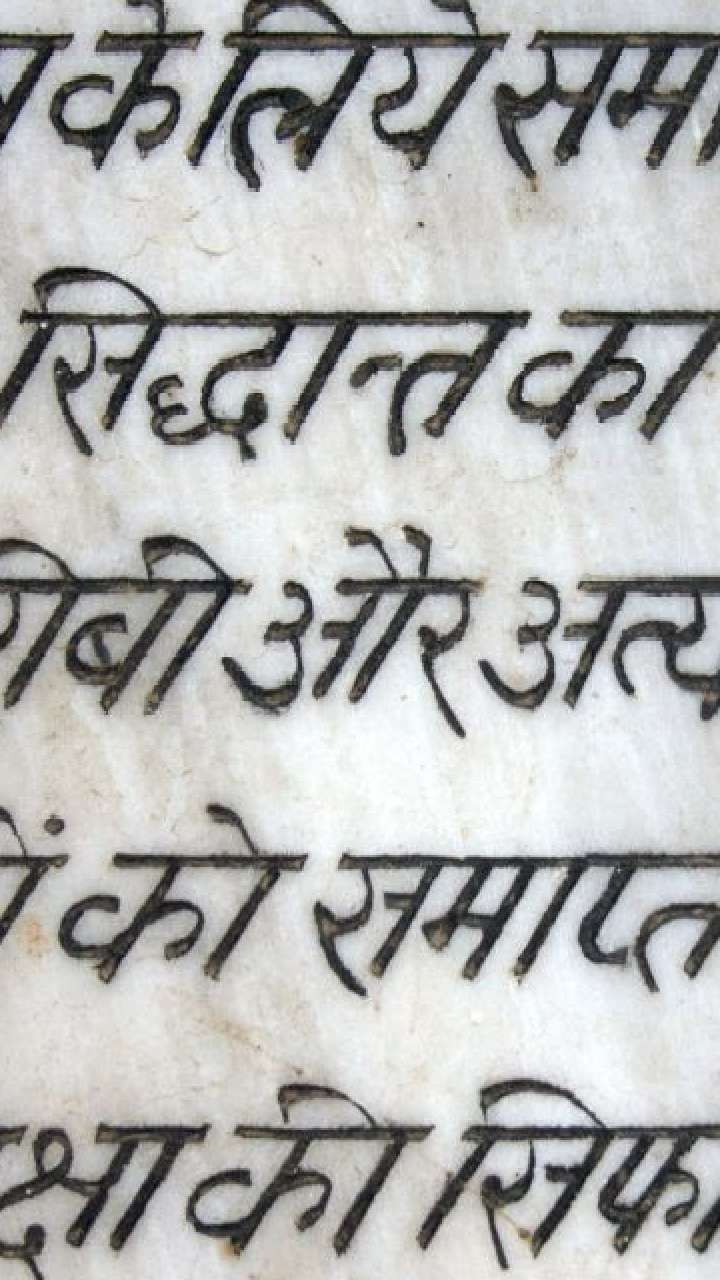 के लिये समा
सिद्धान्त का
और अत्य
को समाप्त
की सिफा